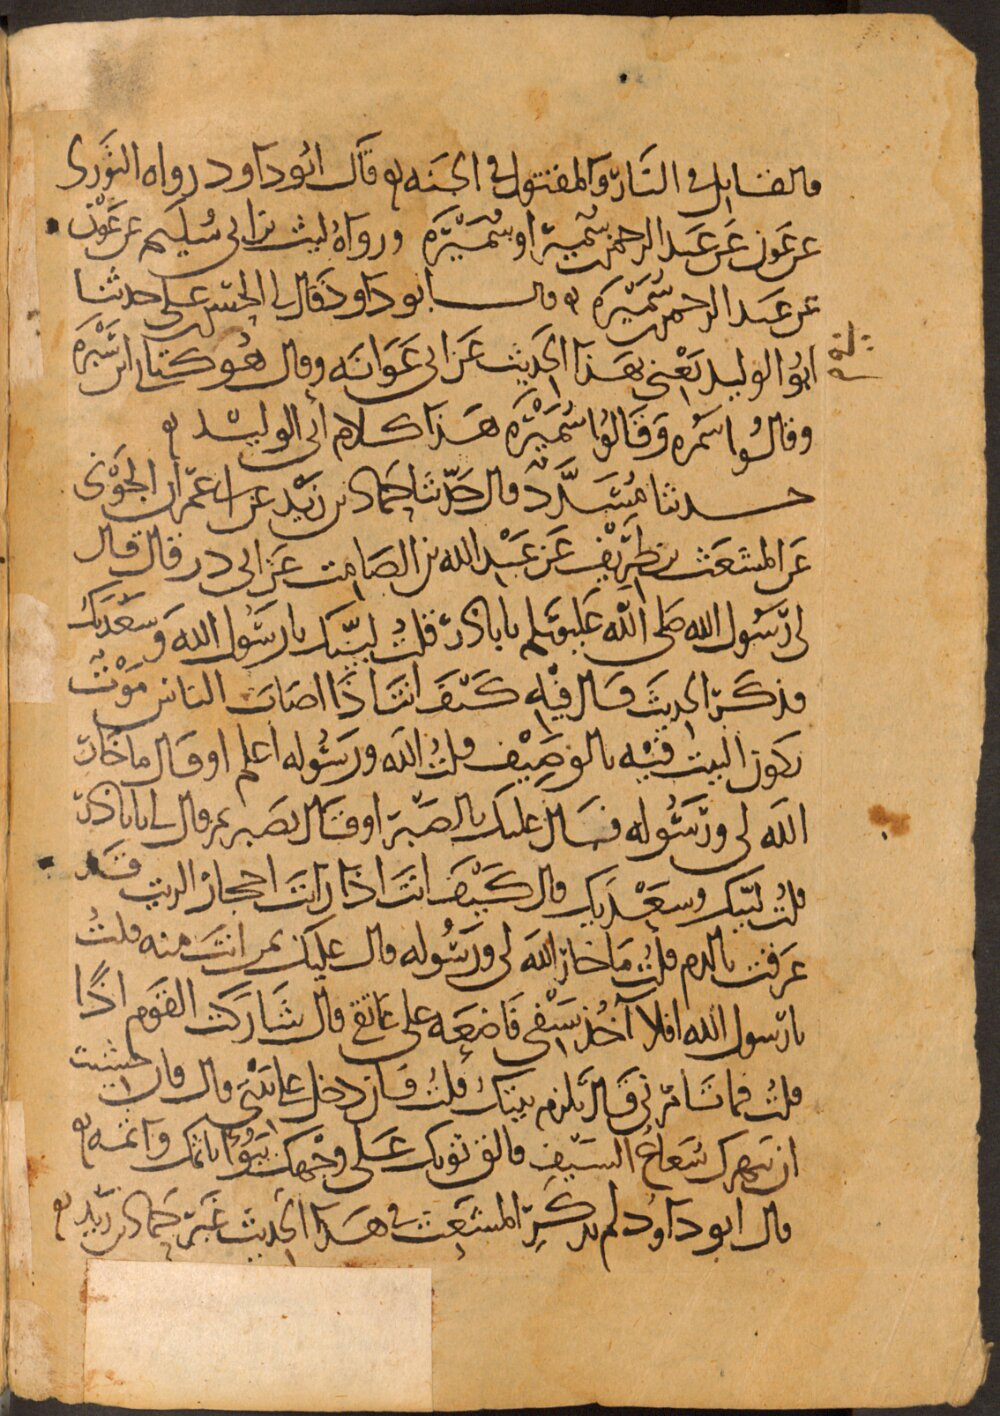 فالقاتل في النار والمقتول في الجنه قال ابو داود رواه الثوري
عن عون عن عبد الرحمن سمير او سميرة ورواه ليث بن ابي سليم عن عون
عن عبد الرحمن سميرة قال ابو داود قال لي الحسن بن علي حدثنا
ابو الوليد يعني بهذا الحديث عن ابي عوانه وقال هو في كتابي ابن سبرة
وقالوا سمره وقالوا سميرة هذا كلام ابي الوليد
حدثنا مسدد قال حدثنا حماد بن زيد عن ابي عمران الجوني
عن المشعث بن طريف عن عبد الله بن الصامت عن ابي ذر قال قال
لي رسول الله صلى الله عليه وسلم يا باذر قلت لبيك يا رسول الله وسعديك
فذكر الحديث قال فيه كيف انت اذا اصاب الناس موت
يكون البيت فيه بالوصيف قلت الله ورسوله اعلم او قال ما خار
الله لي ورسوله قال عليك بالصبر او قال تصبر ثم قال لي يا باذر
قلت لبيك وسعديك قال كيف انت اذا رايت احجار الزيت قد
غرقت بالدم قلت ما خار الله لي ورسوله قال عليك بمن انت منه قلت
يا رسول الله افلا آخذ سيفي فاضعه على عاتقي قال شاركت القوم اذا
قلت فما تامرني قال تلزم بيتك قلت فان دخل علي بيتي قال فان خشيت
ان يبهرك شعاع السيف فالق ثوبك على وجهك يبوء باثمك واثمه
قال ابو داود لم يذكر المشعث في هذا الحديث غير حماد بن زيد